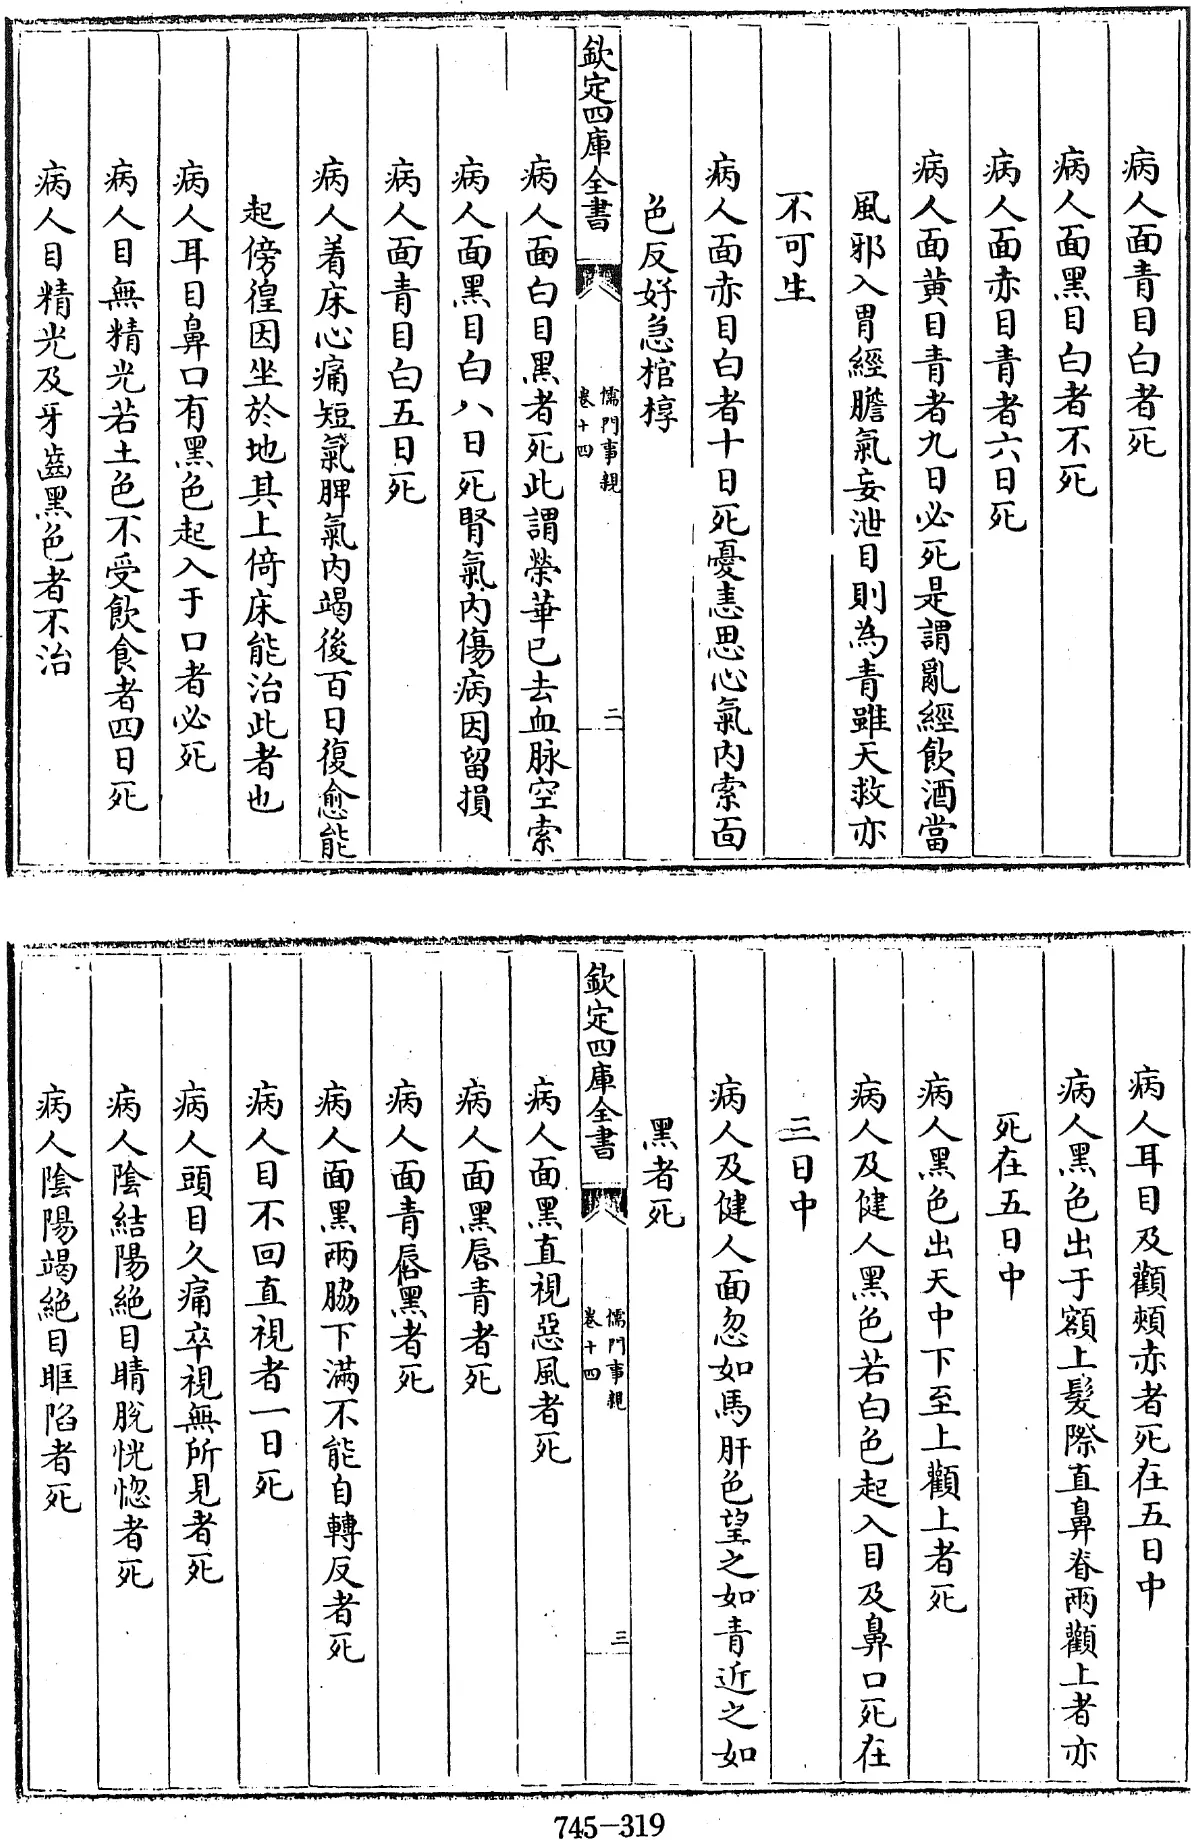 病人面青目白者死
病人面黑目白者不死
病人面赤目青者六日死
病人面黄目青者九日必死是謂亂經飲酒當
風邪入胃經膽氣妄泄目則為青雖天救亦
不可生
病人面赤目白者十日死憂恚思心氣内索面
色反好急棺椁
欽定四庫全書
儒門事親
卷十四
二
病人面白目黑者死此謂榮華已去血脉空索
病人面黑目白八日死腎氣内傷病因留損
病人面青目白五日死
病人着床心痛短氣脾氣内竭後百日復愈能
起傍徨因坐於地其上倚床能治此者也
病人耳目鼻口有黑色起入于口者必死
病人目無精光若土色不受飲食者四日死
病人目精光及牙齒黑色者不治
病人耳目及顴頰赤者死在五日中
病人黑色出于額上髮際直鼻脊兩顴上者亦
死在五日中
病人黑色出天中下至上顴上者死
病人及健人黑色若白色起入目及鼻口死在
三日中
病人及健人面忽如馬肝色望之如青近之如
黑者死
欽定四庫全書
儒門事親
卷十四
三
病人面黑直視惡風者死
病人面黑唇青者死
病人面青唇黑者死
病人面黑兩脇下滿不能自轉反者死
病人目不回直視者一日死
病人頭目久痛卒視無所見者死
病人陰結陽絶目睛脫恍惚者死
病人陰陽竭絶目眶陷者死
745-319